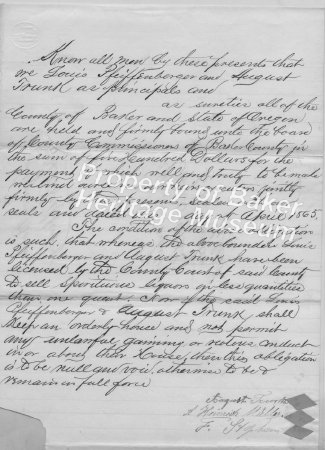 Know all men by these presents that
we Louis Pfeiffenberger and August
Trunk as principals and
as sureties all of the
County of Baker and State of Oregon
are held and firmly bound unto the board
of County Commissioners of Baker County in
the sum of five hundred Dollars for the
payment of which well and truly to be made
we bind
firmly by these presents, sealed with our
seals and dated this April 1865.
The condition of the above obligation
is such, that whereas the above bounden Louis
Pfeiffenberger and August Trunk have been
licensed by the County Court of said County
to sell spirituous liquors in less quantities
than one quart, Now if the said Louis
Pfeiffenberger & August Trunk shall
keep an orderly house and not permit
any unlawful gaming or riotous conduct
in or about their House, then this obligation
is to be null and void, otherwise to be &
remain in full force
August Trunk
Property of Baker
Heritage Museum